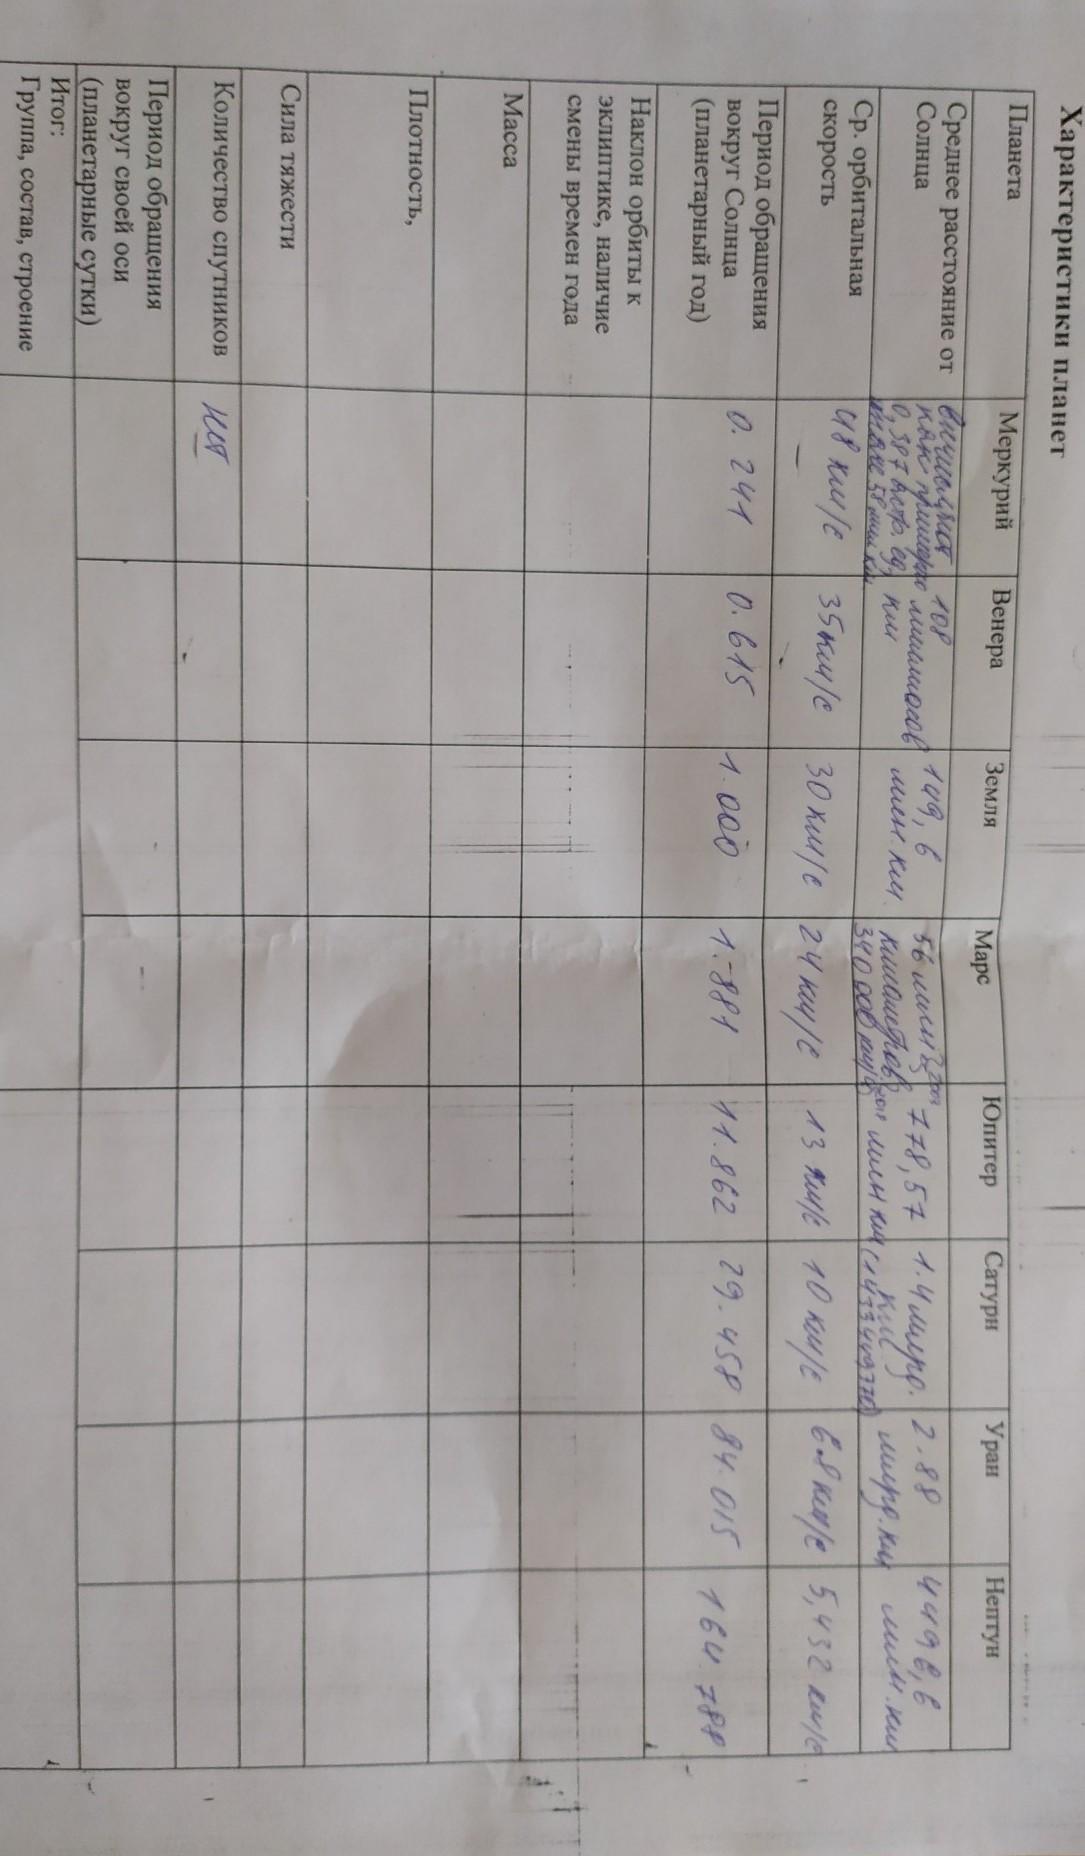 Характеристики планет
Планета
Меркурий
Венера
Земля
Марс
Юпитер
Сатурн
Уран
Нептун
Среднее расстояние от
Солнца
как
0,387 астр. ед.
58 млн км
108
миллионов
км
149,6
млн. км.
56 млн
километров
340 000 км/с
778,57
млн км
1.4 млрд.
км
(1433449370)
2.88
млрд. км
4496,6
млн. км
Ср. орбитальная
скорость
48 км/с
35 км/с
30 км/с
24 км/с
13 км/с
10 км/с
6.8 км/с
5,432 км/с
Период обращения
вокруг Солнца
(планетарный год)
0. 241
0. 615
1. 000
1. 881
11. 862
29. 458
84. 015
164. 788
Наклон орбиты к
эклиптике, наличие
смены времен года
Масса
Плотность,
Сила тяжести
Количество спутников
нет
Период обращения
вокруг своей оси
(планетарные сутки)
Итог:
Группа, состав, строение